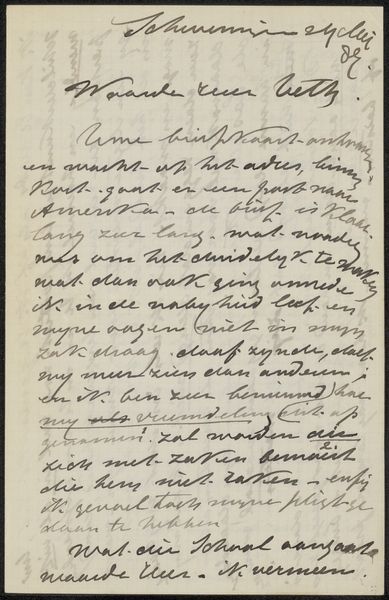 Scheveningen 24
Waarde Heer Veth.
Uwe briefkaart ontvangen
en wacht op het adres, binnen
kort gaat er een post naar
Amerika. de brief is klaar
lang zeer lang. wat noodig
was om het duidelyk te maken
wat dan ook ging
ik in de nabyheid leef en
myne oogen niet in myn
zak draag. doof zynde, doet
my meer zien dan anderen
en ik ben zeer benieuwd hoe
my als vreemdeling op
genomen! zal worden die
zich met zaken bemoeit
die hem niet raken - enfin
ik gevoel toch myne pligt ge
daan te hebben
Wat die School aangaat
waarde Heer. Ik vermeen